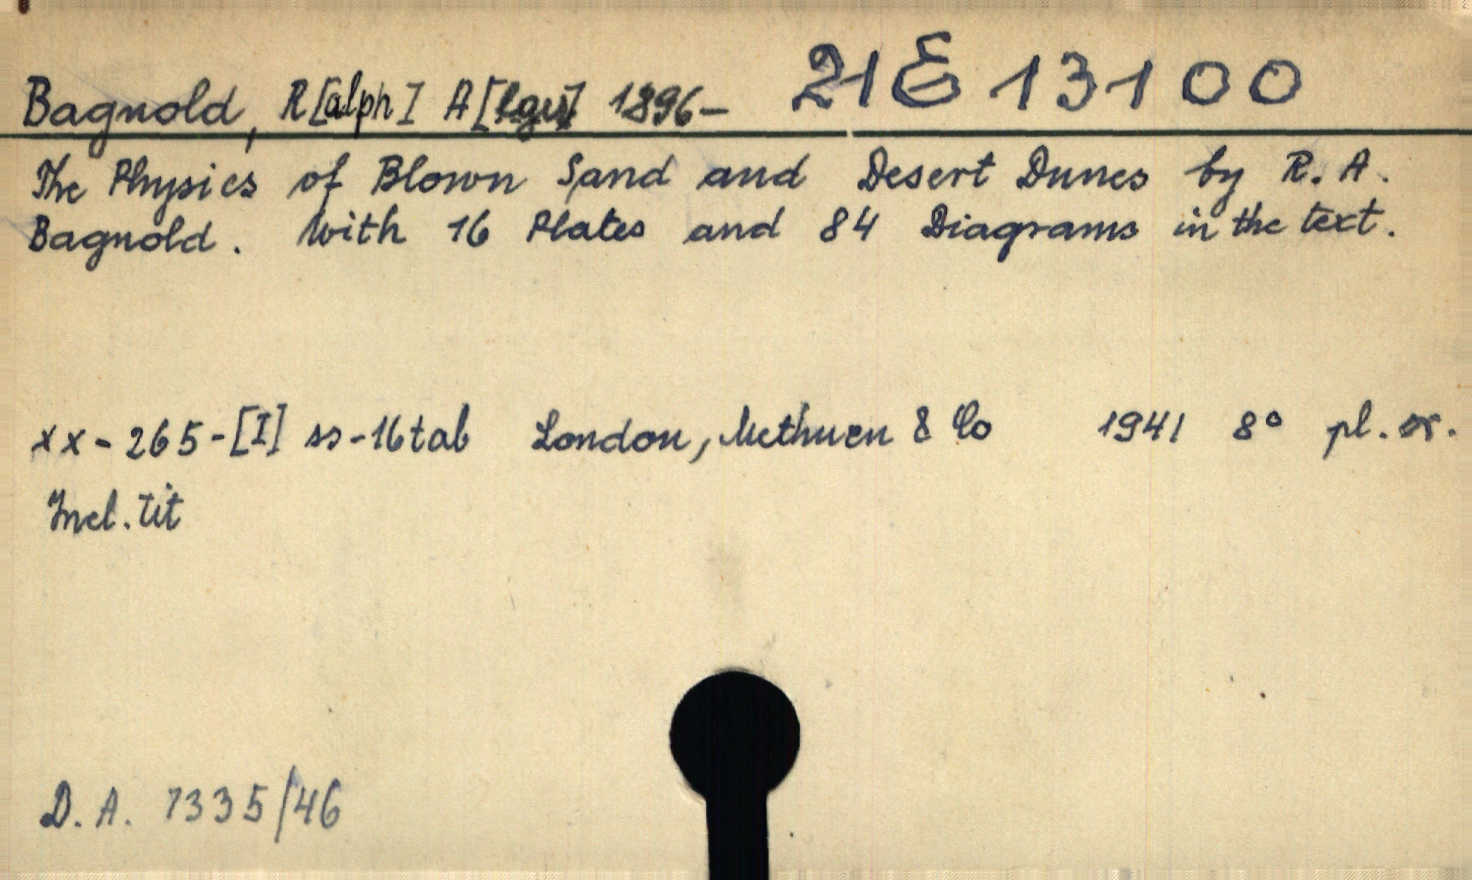 Bagnold, R[alph] A[lger] 1896- 21 E 13100
The Physics of Blown Sand and Desert Dunes by R. A.
Bagnold. With 16 Plates and 84 Diagrams in the text.
xx-265-[I] ss-16 tab London, Methuen & Co 1941 8° pl. or.
Incl. tit
D. A. 7335/46